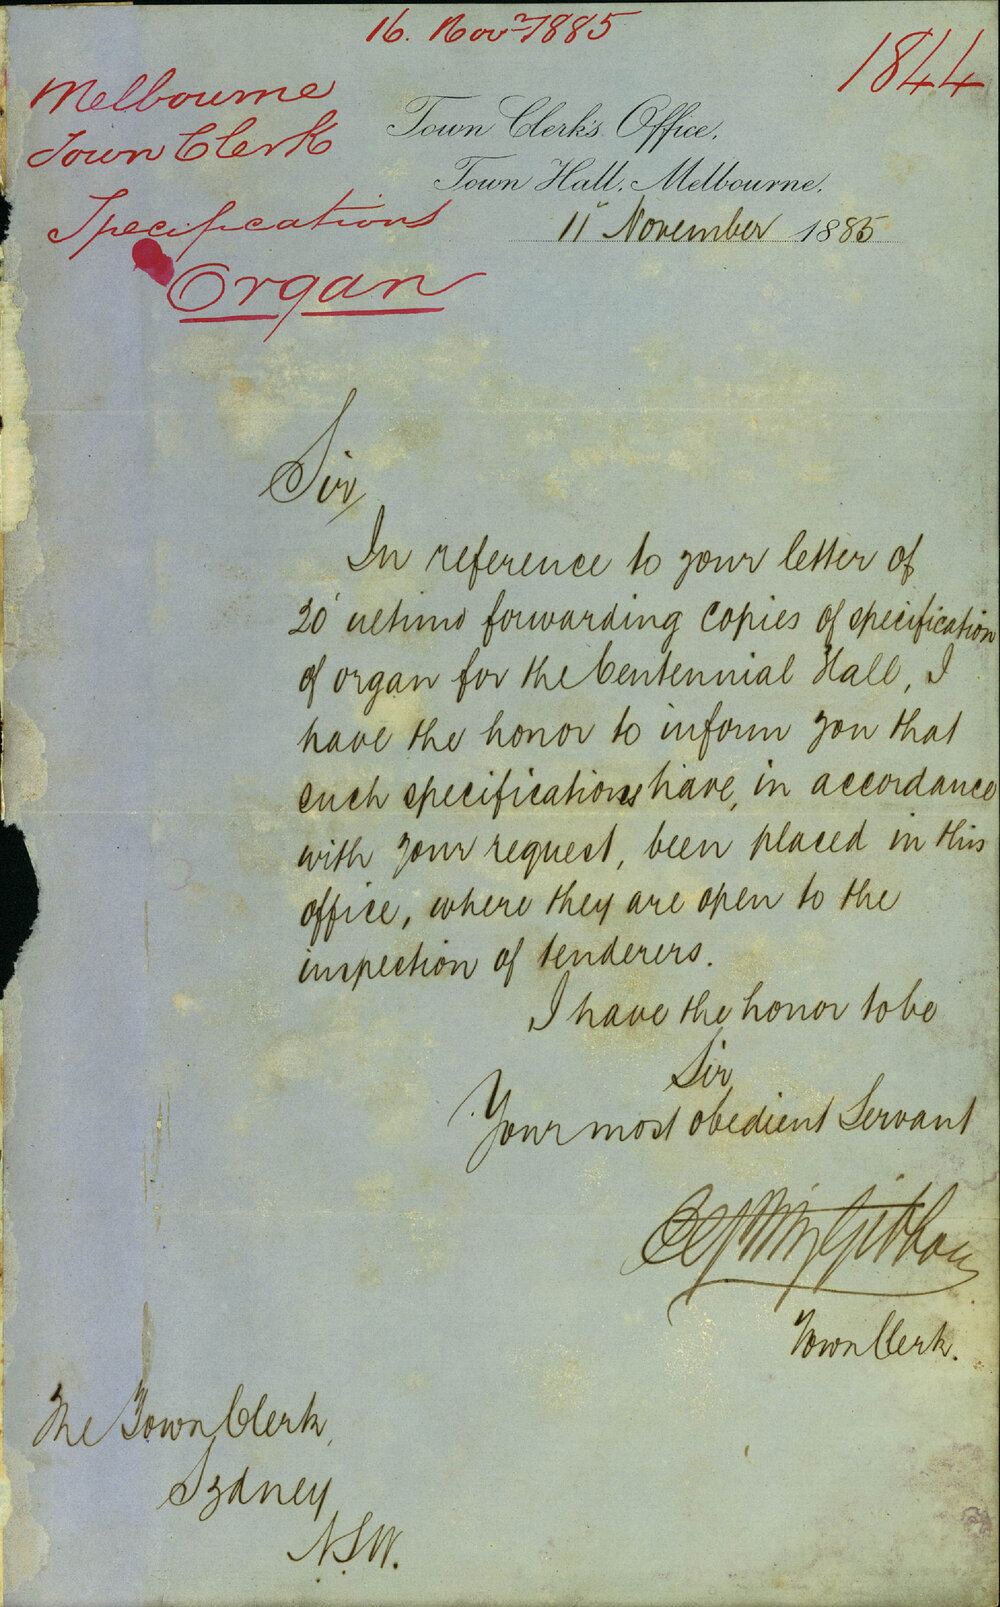 16. Novr 1885
1844
Melbourne
Town Clerk
Specifications
Organ
Town Clerk's Office,
Town Hall, Melbourne,
11 November 1885
Sir,
In reference to your letter of
20 ultimo forwarding copies of specification
of organ for the Centennial Hall, I
have the honor to inform you that
such specifications have, in accordance
with your request, been placed in this
office, where they are open to the
inspection of tenderers.
I have the honor to be
Sir,
Your most obedient Servant
FitzGibbon
Town Clerk.
The Town Clerk,
Sydney
N.S.W.